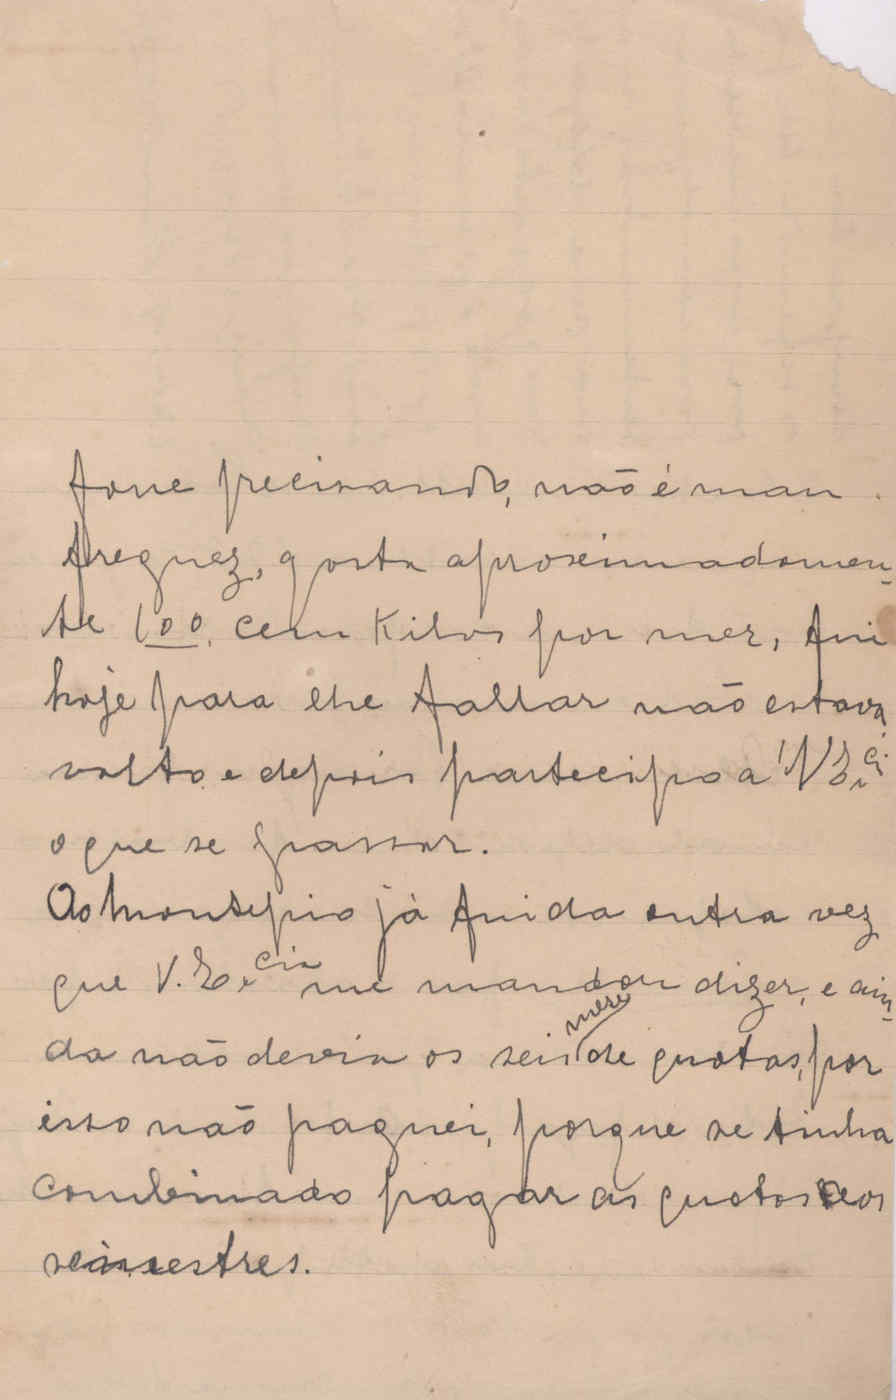 fôsse precisando, não é mau
freguez, gasta aproximadamen-
te 100, cem Kilos por mez, fui
hoje para lhe fallar não estava
volto e depois partecipo a V. E.cia
o que se passar.
Ao Montepio já fui da outra vez
que V. E.cia me mandou dizer, e ain-
da não devia os seis meses de quotas, por
isso não paguei, porque se tinha
combinado pagar as quotas aos
semestres.